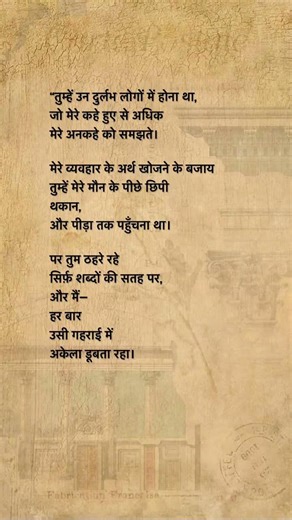 “तुम्हें उन दुर्लभ लोगों में होना था,
जो मेरे कहे हुए से अधिक
मेरे अनकहे को समझते।
मेरे व्यवहार के अर्थ खोजने के बजाय
तुम्हें मेरे मौन के पीछे छिपी
थकान,
और पीड़ा तक पहुँचना था।
पर तुम ठहरे रहे
सिर्फ़ शब्दों की सतह पर,
और मैं—
हर बार
उसी गहराई में
अकेला डूबता रहा।